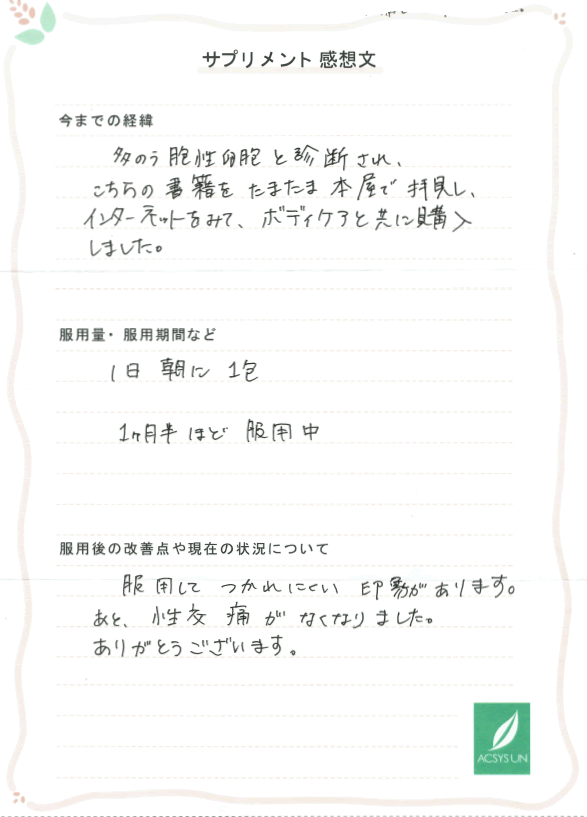 サプリメント 感想文
今までの経緯
多のう胞性卵胞と診断され、
こちらの書籍をたまたま本屋で拝見し、
インターネットをみて、ボディケアと共に購入
しました。
服用量・服用期間など
1日 朝に 1包
1ヶ月半ほど 服用中
服用後の改善点や現在の状況について
服用して つかれにくい 印象があります。
あと、性交痛がなくなりました。
ありがとうございます。
ACSYSUN